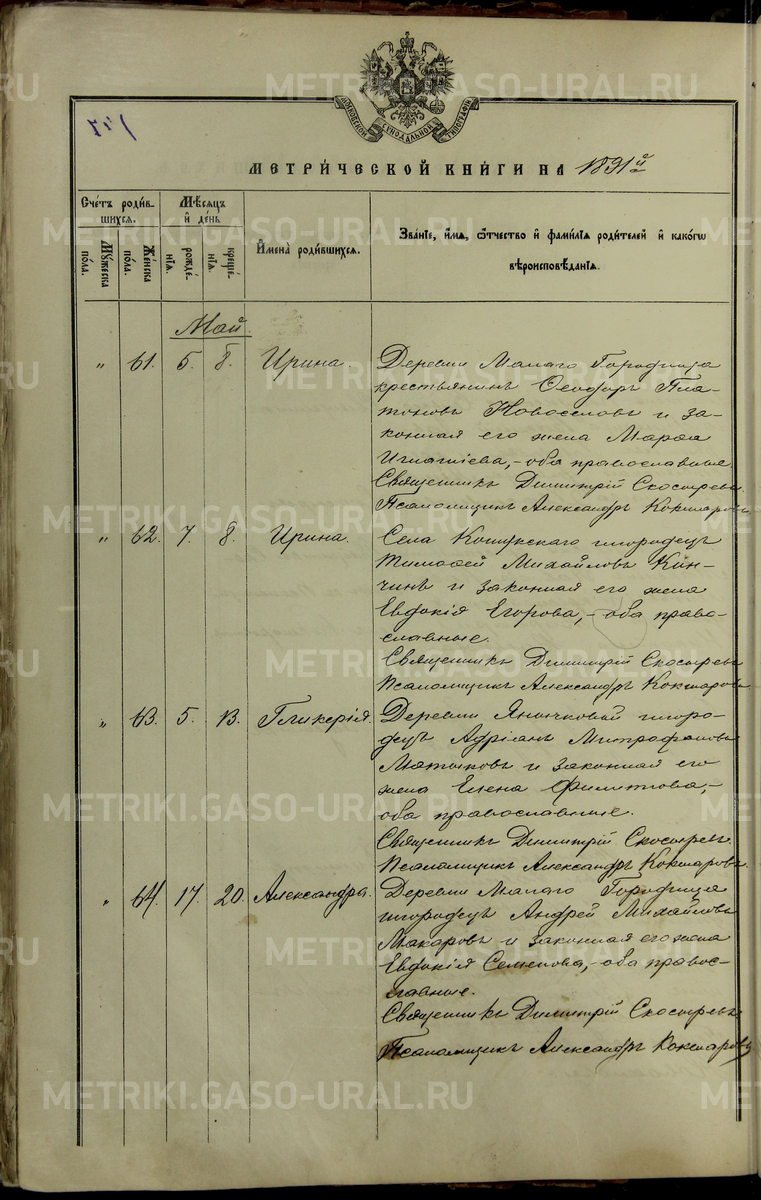 МОСКОВСКОЙ СѶНОДАЛЬНОЙ ТИПОГРАФІИ
МЕТРИ́ЧЕСКОЙ КНИ́ГИ НА 1891й
Сче́тъ роди́в-
шихся.
Мѣ́сяцъ
и҆ де́нь
Мꙋ́жеска
по́ла.
Же́нска
по́ла.
рожде́-
нїѧ.
креще́-
нїѧ.
И҆мена̀ роди́вшихся.
Зва́нїе, и҆́мѧ, ѻ҆́тчество и҆ фами́лїѧ роди́телей и҆ како́гѡ
вѣроисповѣ́данїѧ.
Май.
" 61. 5. 8. Ирина. Деревни Малаго Городища
крестьянинъ Ѳеодоръ Пла-
тоновъ Новоселовъ и за-
конная его жена Марѳа
Игнатіева, - оба православные.
Священникъ Димитрій Скосыревъ.
Псаломщикъ Александръ Кокшаровъ.
" 62. 7. 8. Ирина. Села Кошукскаго
Тимоѳей Михайловъ Кин-
чинъ и законная его жена
Евдокія Егорова, - оба право-
славные.
Священникъ Димитрій Скосыревъ
Псаломщикъ Александръ Кокшаровъ
" 63. 5. 13. Гликерія. Деревни Янычковой
Адріанъ Митрофановъ
и законная его
жена Елена Филиппова, -
оба православные.
Священникъ Димитрій Скосыревъ.
Псаломщикъ Александръ Кокшаровъ.
" 64. 17. 20. Александра. Деревни Малаго Городища
Андрей Михайловъ
Макаровъ и законная его жена
Евдокія Семенова, - оба правос-
лавные.
Священникъ Димитрій Скосыревъ
Псаломщикъ Александръ Кокшаровъ
METRIKI.GASO-URAL.RU